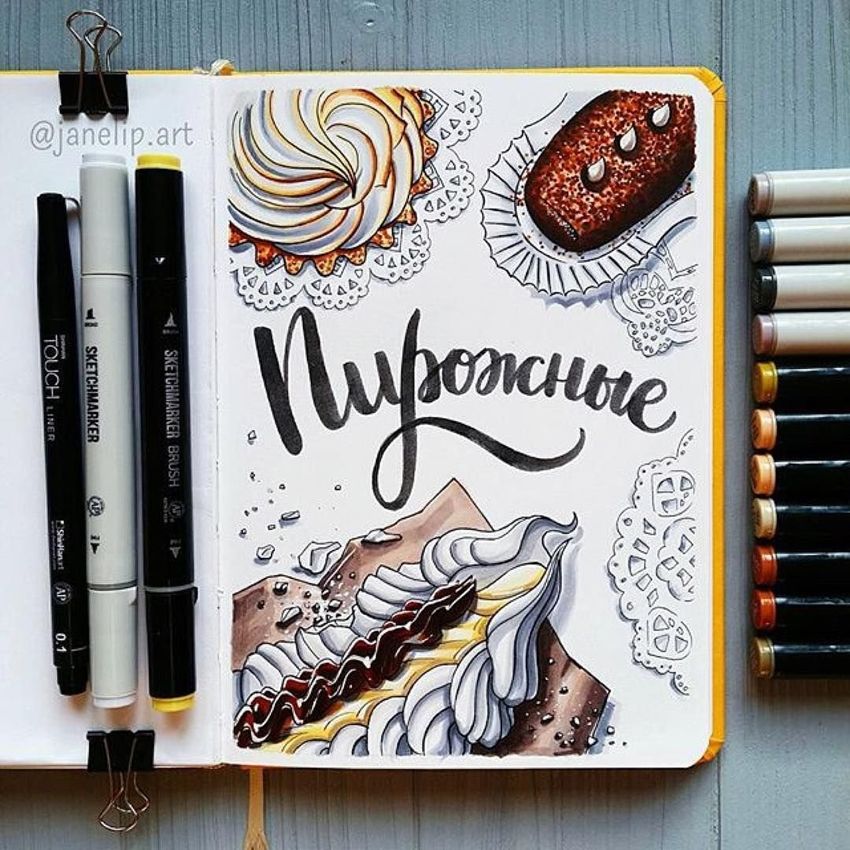 @janelip.art
Пирожные
TOUCH LINER
ShinHanart
0.1
SKETCHMARKER
SKETCHMARKER BRUSH